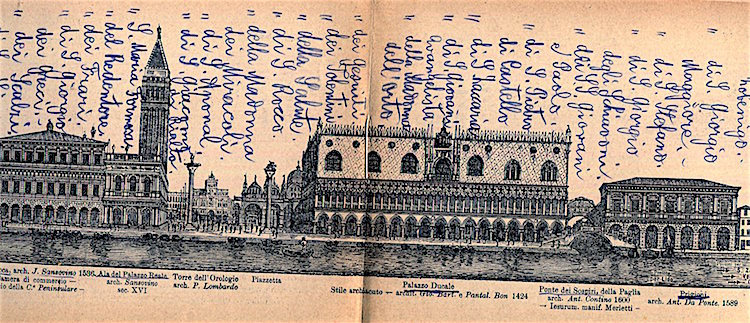 " di S. Giorgio
Maggiore.
" di S. Stefano.
" di S. Giorgio
degli Schiavoni
" dei SS Giovanni
e Paolo.
" di S. Pietro
di Castello
" di S. Zaccaria
" di S. Giovanni
Evangelista
" della Madonna
dell'Orto
" dei Gesuiti
" dei Tolentini
" della Salute.
" di S. Rocco.
" della Madonna
dei Miracoli.
" di S. Aponal.
" di S. Giacometto
di Rialto
" S. Maria Formosa
" del Redentore
" dei Frari
" di S. Giorgio
dei Greci.
" dei Scalzi
arch. J. Sansovino 1536
Camera di commercio –
della C.ª Peninsulare –
Ala del Palazzo Reale
arch. Sansovino
sec. XVI
Torre dell'Orologio
arch. P. Lombardo
Piazzetta
Palazzo Ducale
Stile archiacuto – archit. Gio. Bart. e Pantal. Bon 1424
Ponte dei Sospiri, della Paglia
arch. Ant. Contino 1600
– Jesurum. manif. Merletti –
Prigioni
arch. Ant. Da Ponte. 1589